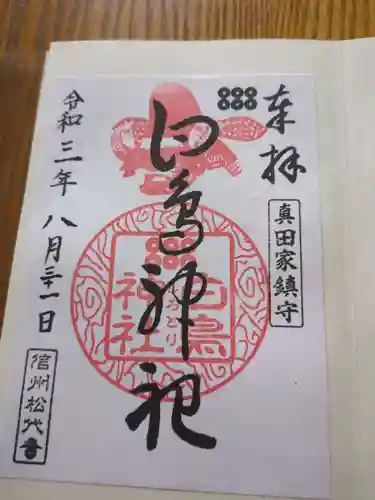 奉拝
真田家鎮守
白鳥神社
白鳥神社
しろとり
令和三年八月三十一日
信州松代